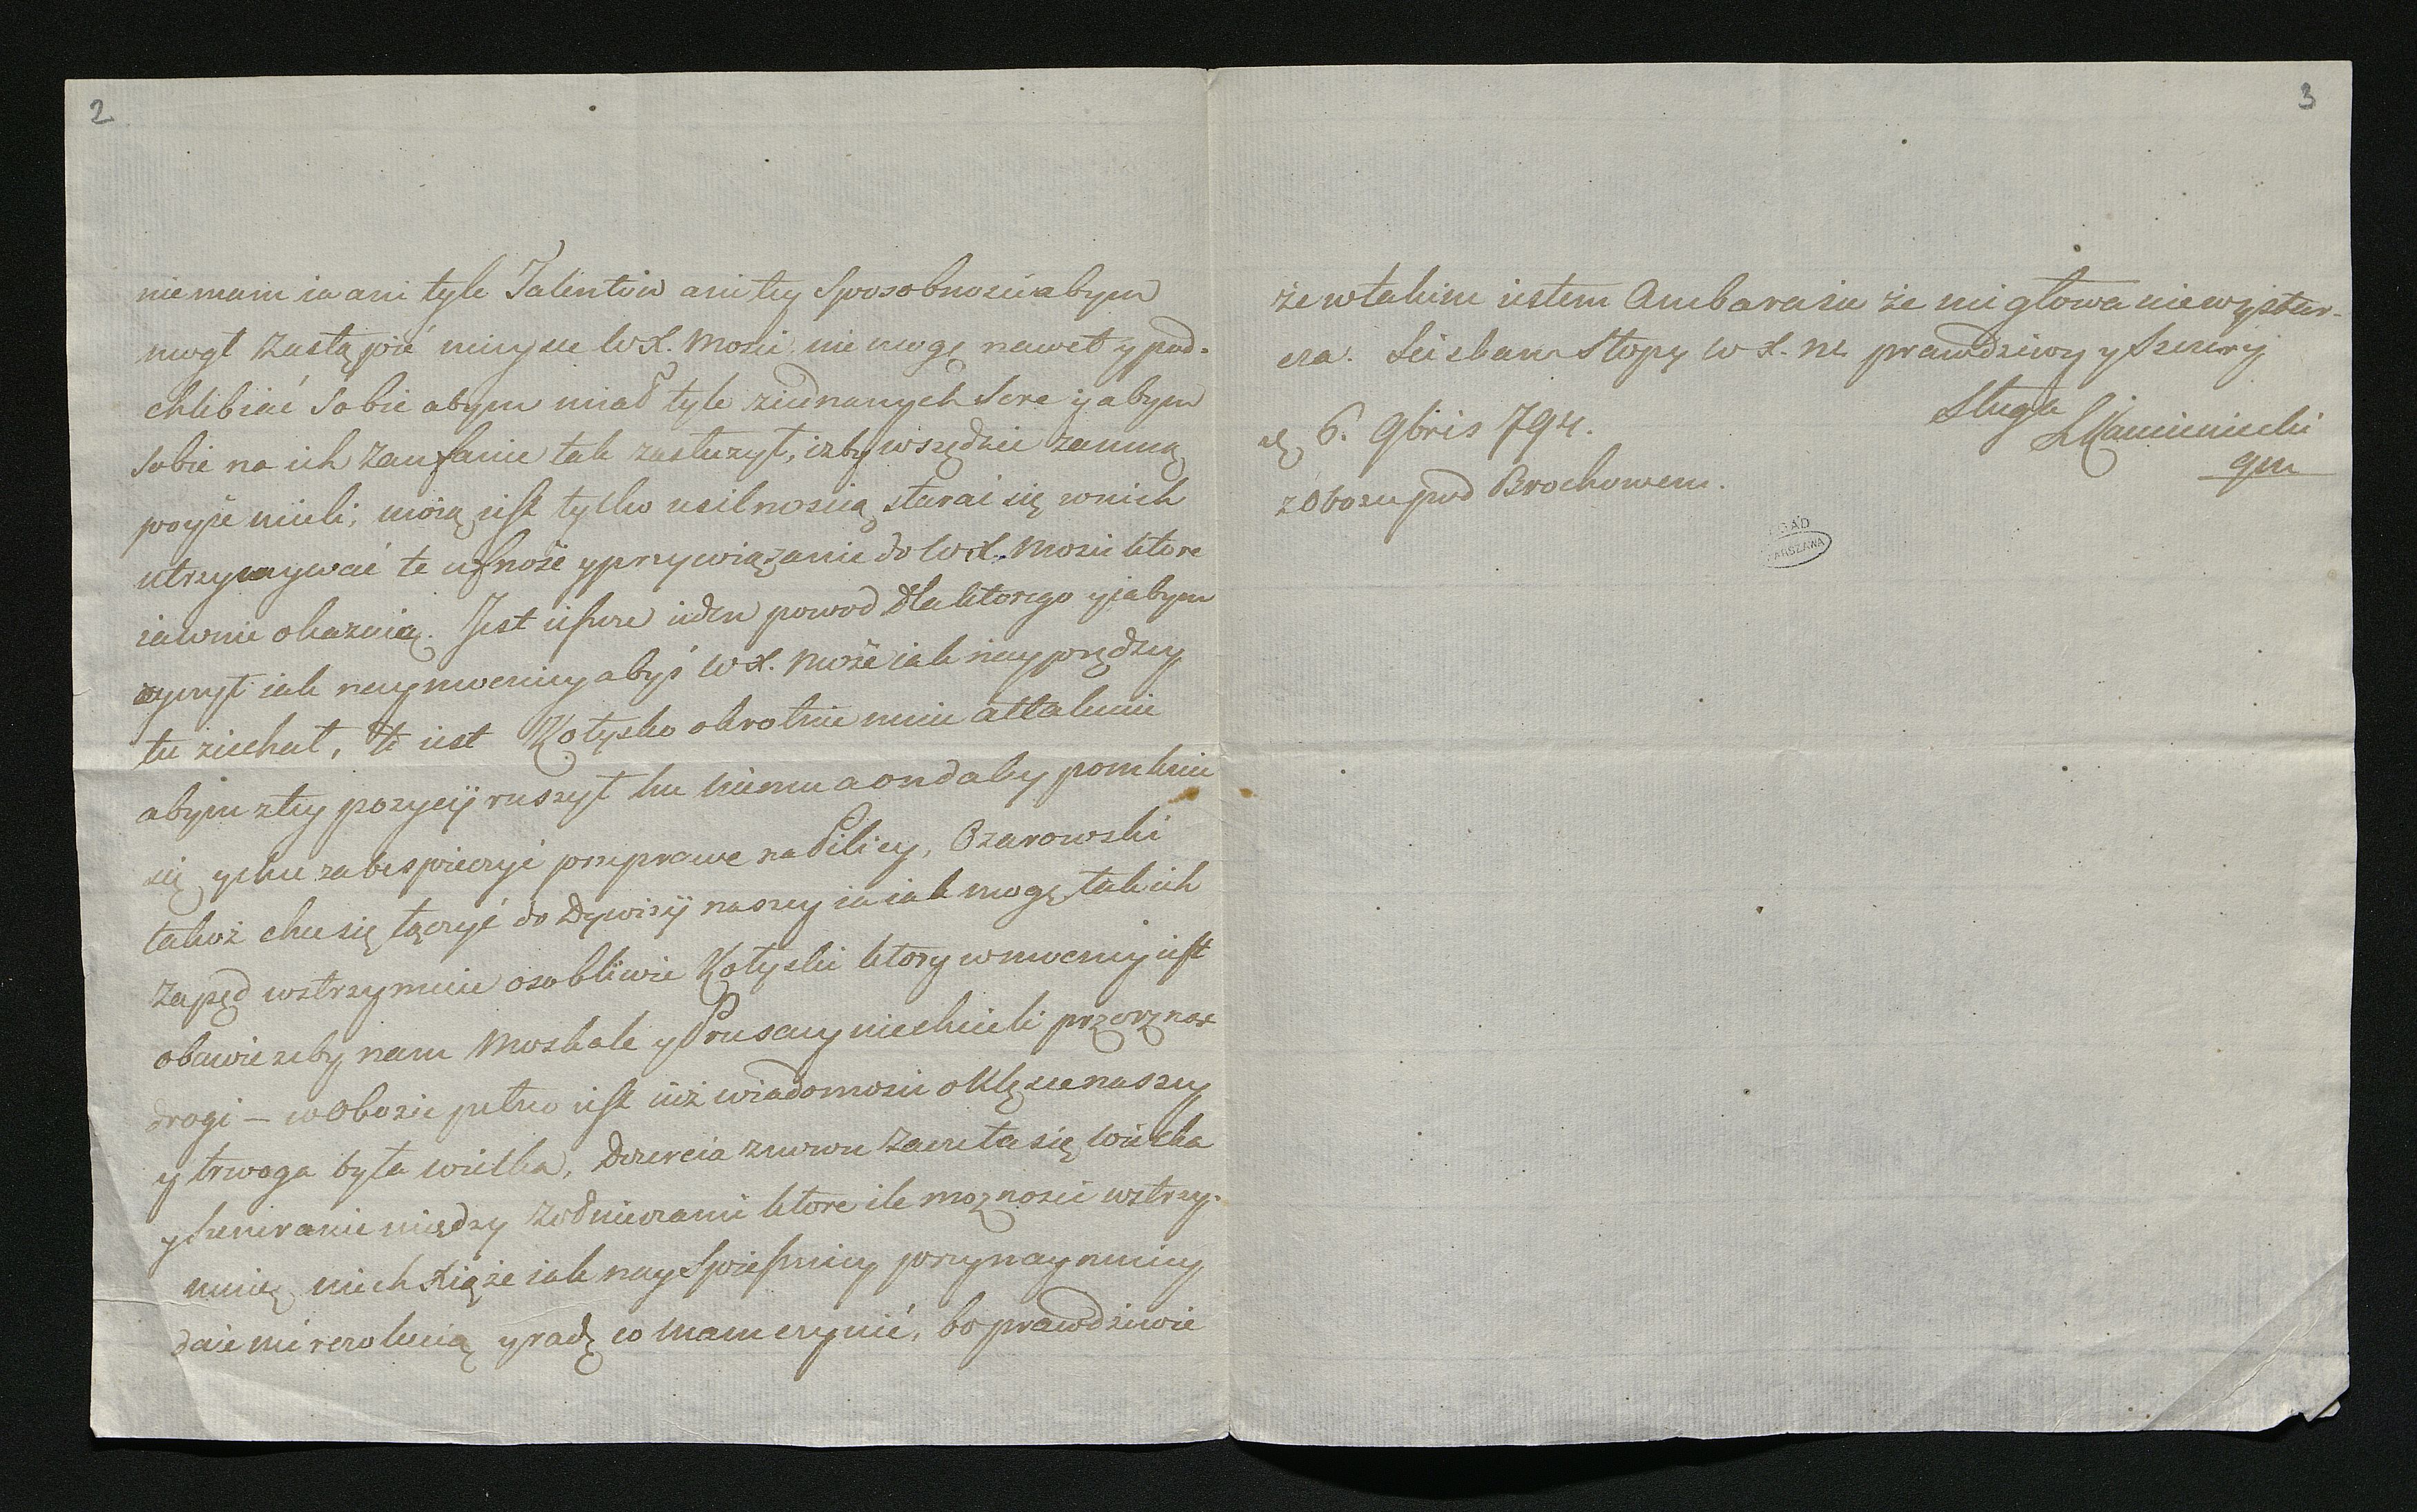 2
nie mam ia ani tyle Talentów ani tey Sposobnosci abym
mogł zastąpić mieysce W X. Mości, nie mogę nawet y pod-
chlebiać sobie abym miał tyle ziednanych serc y abym
sobie na ich zaufanie tak zasłużył, izby wszędzie zamną
poyść mieli, moią iest tylko usilnoscią starać się wnich
utrzymywać te ufność y przywiązanie do W X. Mości ktore
iawnie okazuią. Jest ieszcze ieden powod dla ktorego y iabym
życzył iak naymocniey abyś W X. Mość iak nayprędzey
tu ziechał, to iest Kołysko okrotnie mnie attakuie
abym ztey pozycyi ruszył ku niemu a on daley pomknie
się y chce zabespieczyć przeprawe na Pilicy, Ożarowski
takoż chce się łączyć do Dywizyi naszey ia iak mogę tak ich
zapęd wstrzymuie osobliwie Kołyski ktory w mocney iest
obawie zeby nam Moskale y Prusacy niechcieli przerznąć
drogi – w Obozie pełno iest iuż wiadomosci o Klęsce naszey
y trwoga była wielka, Dezercia znowu zaczeła się wielka
y szemranie miedzy Zołnierzami ktore ile moznosci wstrzy-
muię niech Xiąże iak nayspieszniey przynaymniey
daie mi rezolucią y radę co mam czynić, bo prawdziwie
3
że w takim iestem Ambarasie że mi głowa niewystar-
cza. Sciskam Stopy W X. M prawdziwy y Szczery
Sługa
LKamieniecki
gm
6. 9bris 794.
z Obozu pod Brochowem.
AGAD
WARSZAWA